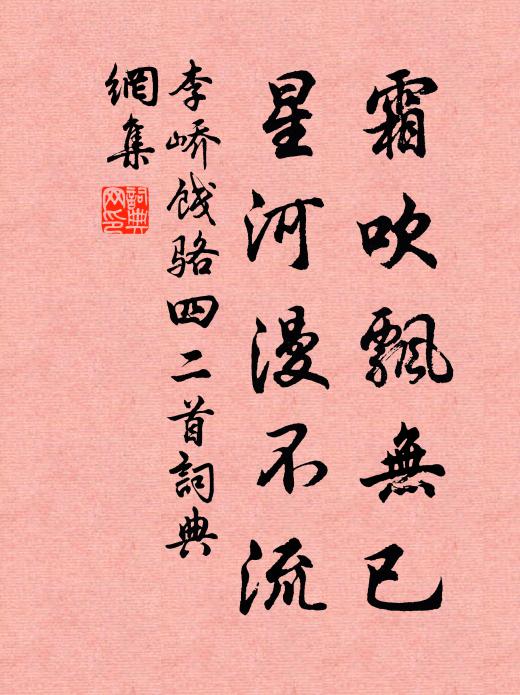 霜吹飄無已
星河漫不流
李嶠餞駱四二首詞典
網集
詞典網印